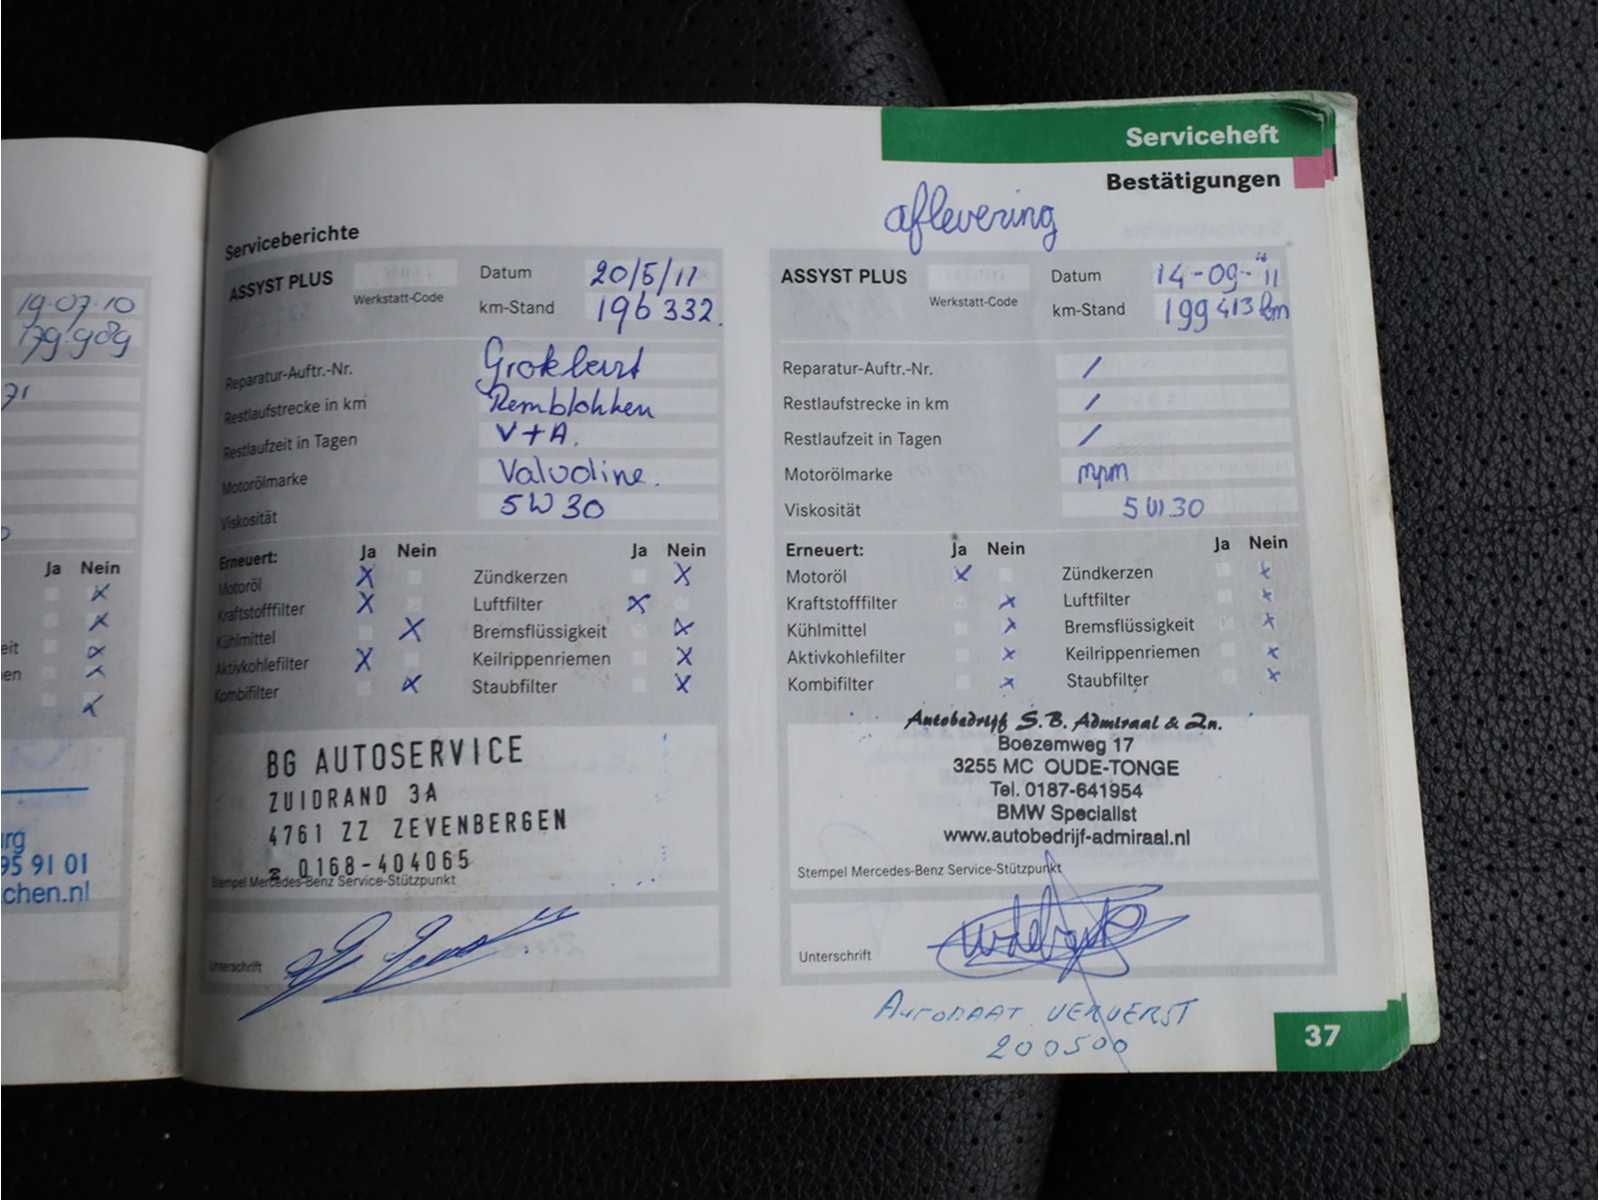 Serviceheft
Bestätigungen
19-07-10
179.989
71
Ja Nein
eit
en
rg
95 91 01
chen.nl
Serviceberichte
ASSYST PLUS
Werkstatt-Code
Datum 20/5/11
km-Stand 196 332.
Reparatur-Auftr.-Nr. Grokbeurt
Restlaufstrecke in km Remblokken
Restlaufzeit in Tagen V+A.
Motorölmarke Valvoline.
Viskosität 5W30
Erneuert: Ja Nein Ja Nein
Motoröl X Zündkerzen X
Kraftstofffilter X Luftfilter X
Kühlmittel X Bremsflüssigkeit X
Aktivkohlefilter X Keilrippenriemen X
Kombifilter X Staubfilter X
BG AUTOSERVICE
ZUIDRAND 3A
4761 ZZ ZEVENBERGEN
0168-404065
Stempel Mercedes-Benz Service-Stützpunkt
Unterschrift
aflevering
ASSYST PLUS
Werkstatt-Code
Datum 14-09-'11
km-Stand 199 413 km
Reparatur-Auftr.-Nr. /
Restlaufstrecke in km /
Restlaufzeit in Tagen /
Motorölmarke mpm
Viskosität 5W30
Erneuert: Ja Nein Ja Nein
Motoröl X Zündkerzen X
Kraftstofffilter X Luftfilter X
Kühlmittel X Bremsflüssigkeit X
Aktivkohlefilter X Keilrippenriemen X
Kombifilter X Staubfilter X
Autobedrijf S.B. Admiraal & Zn.
Boezemweg 17
3255 MC OUDE-TONGE
Tel. 0187-641954
BMW Specialist
www.autobedrijf-admiraal.nl
Stempel Mercedes-Benz Service-Stützpunkt
Unterschrift
AUTOMAAT VERVERST
200500
37